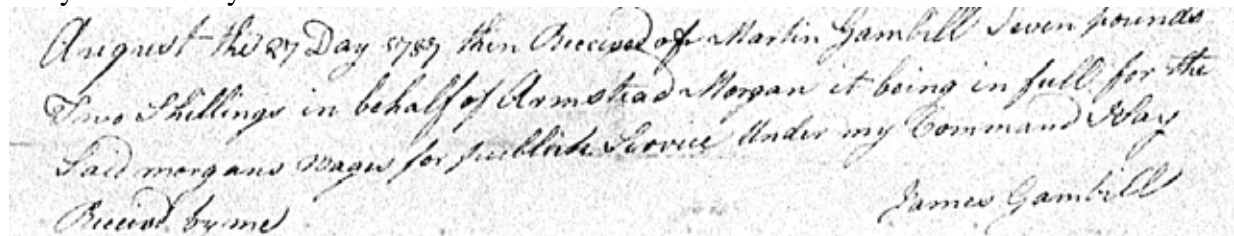 August the 27 Day 1787 then Received of Martin Gambill Seven pounds
Two Shillings in behalf of Armstead Morgan it being in full for the
Said morgans wages for publick Service Under my Command I Say
Receivd by me
James Gambill